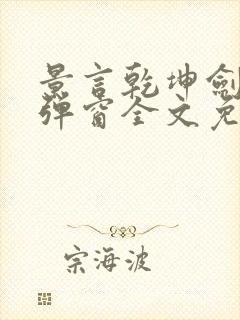 景言乾坤剑
弹窗全文免
宗海波